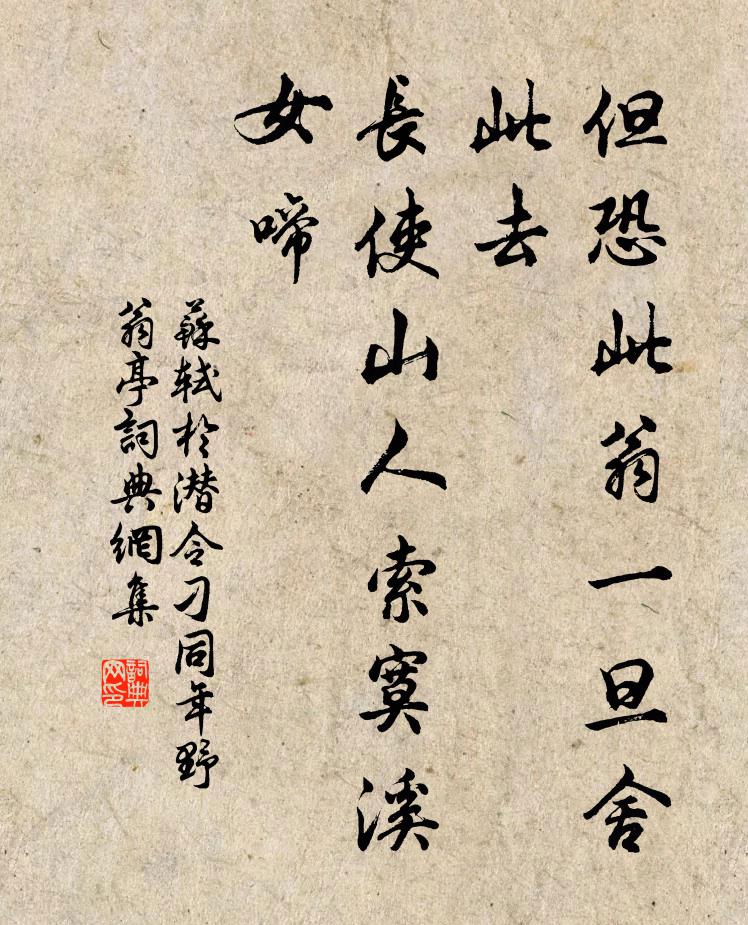 但恐此翁一旦舍
此去
長使山人索寞溪
女啼
蘇軾於潛令刁同年野
翁亭詞典網集
詞典
网印